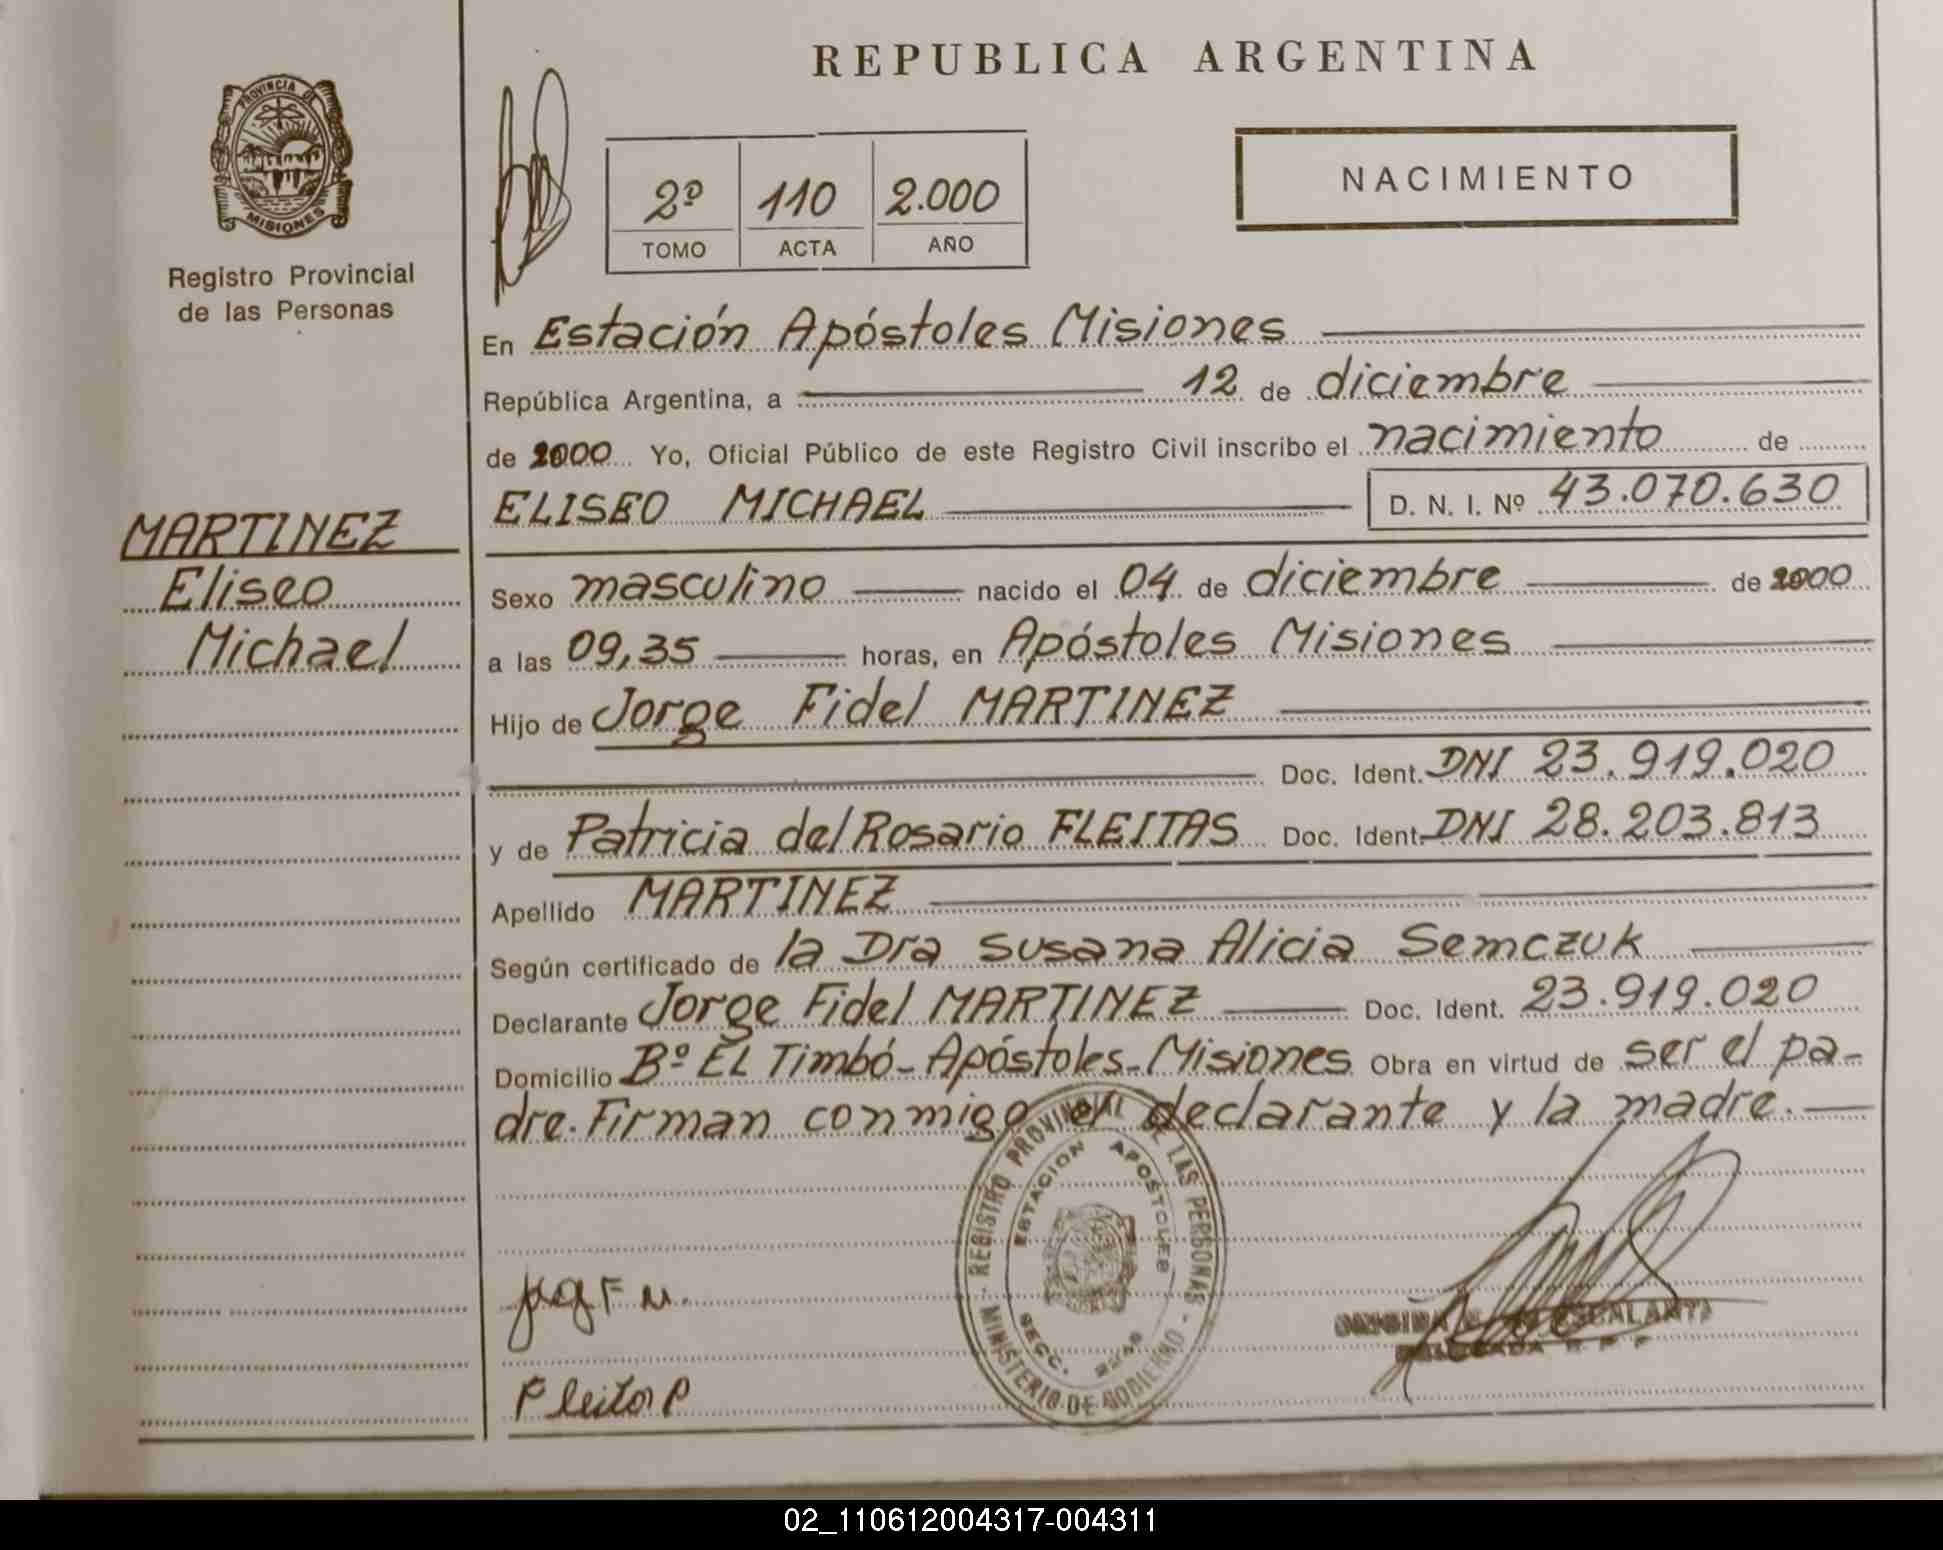 REPUBLICA ARGENTINA
PROVINCIA DE
MISIONES
Registro Provincial
de las Personas
2º 110 2.000
TOMO ACTA AÑO
NACIMIENTO
En Estación Apóstoles Misiones
República Argentina, a 12 de diciembre
de 2000 Yo, Oficial Público de este Registro Civil inscribo el nacimiento de
ELISEO MICHAEL D. N. I. Nº 43.070.630
MARTINEZ
Eliseo
Michael
Sexo masculino nacido el 04 de diciembre de 2000
a las 09,35 horas, en Apóstoles Misiones
Hijo de Jorge Fidel MARTINEZ
Doc. Ident. DNI 23.919.020
y de Patricia del Rosario FLEITAS Doc. Ident. DNI 28.203.813
Apellido MARTINEZ
Según certificado de la Dra Susana Alicia Semczuk
Declarante Jorge Fidel MARTINEZ Doc. Ident. 23.919.020
Domicilio Bº EL Timbó-Apóstoles-Misiones Obra en virtud de ser el pa-
dre. Firman conmigo el declarante y la madre.
REGISTRO PROVINCIAL DE LAS PERSONAS - MINISTERIO DE GOBIERNO -
ESTACION APOSTOLES
SECC.
ESCALANTE
DELEGADA R P P
Fleitas P
02_110612004317-004311